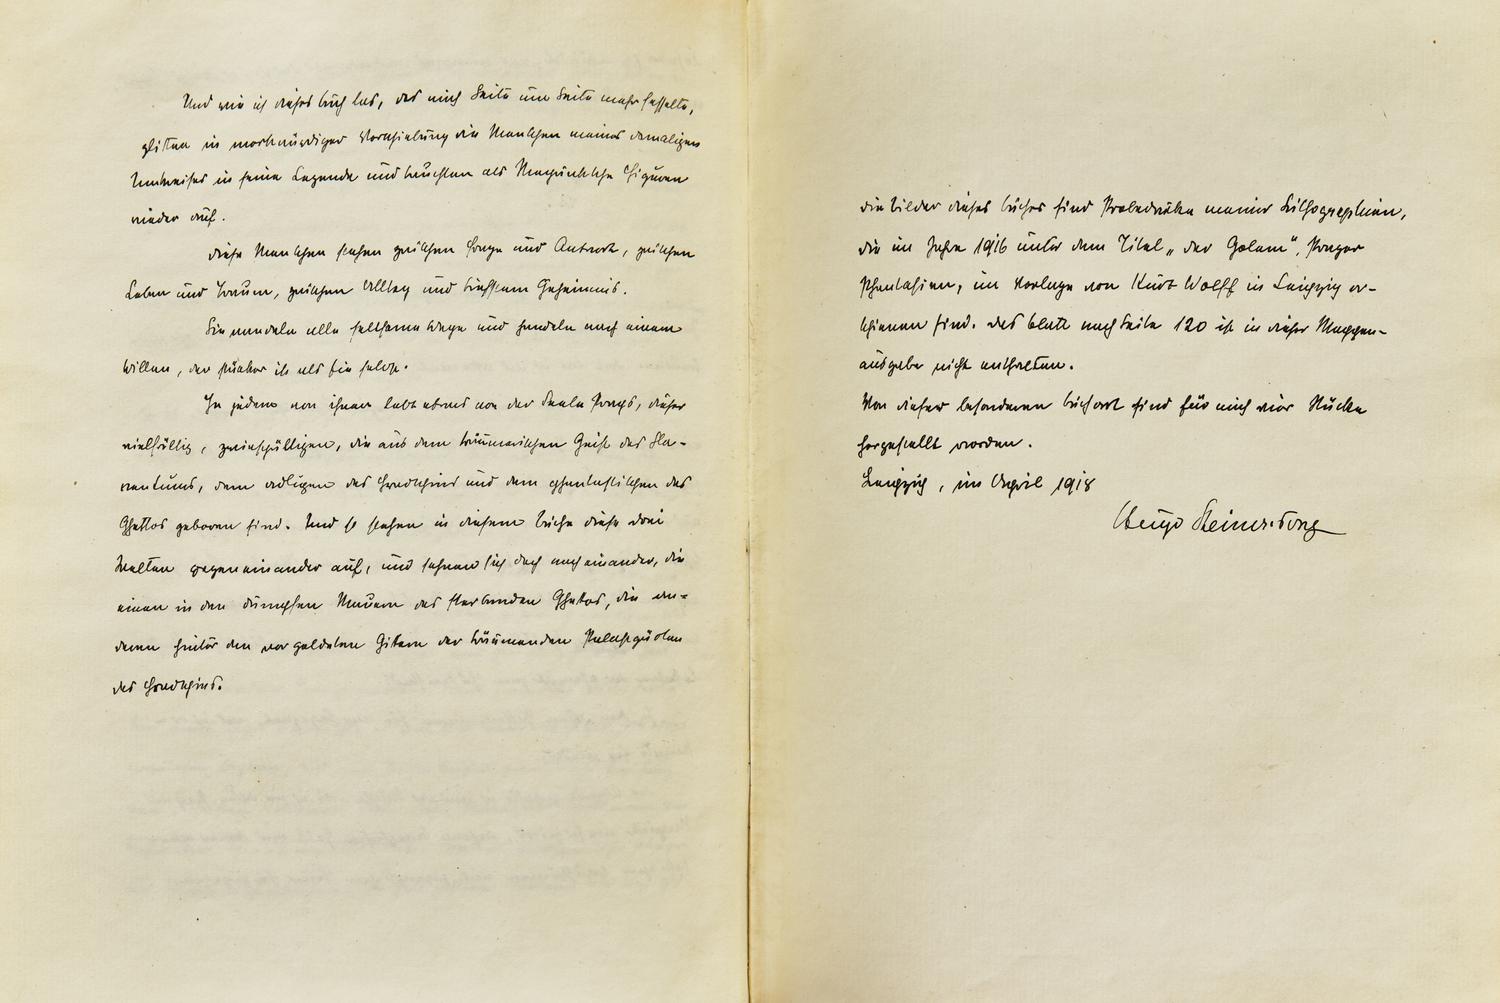 Und wie ich dieses Buch las, das mich Seite um Seite mehr fesselte,
glitten in merkwürdiger Verschiebung die Menschen meines damaligen
Umkreises in seine Legende und tauchten als Figuren
wieder auf.
Diese Menschen stehen zwischen Frage und Antwort, zwischen
Leben und Traum, zwischen Alltag und tiefstem Geheimnis.
Sie wandeln alle seltsame Wege und handeln nach einem
Willen, der stärker ist als sie selbst.
In jedem von ihnen lebt etwas von der Seele Prags, dieser
vielfältig, zwiespältigen, die aus dem träumerischen Geist des Sla-
ventums, dem adligen des Hradschins und dem phantastischen des
Ghettos geboren sind. Und so stehen in diesem Buche diese drei
Welten gegeneinander auf, und sehnen sich doch nach einander, die
einen in den dumpfen Mauern des sterbenden Ghettos, die an-
deren hinter den vergoldeten Gittern der träumenden Palastgärten
des Hradschins.
Die Bilder dieses Buches sind Probedrucke meiner Lithographien,
die im Jahre 1916 unter dem Titel „Der Golem", Prager
Phantasien, im Verlage von Kurt Wolff in Leipzig er-
schienen sind. Das Blatt nach Seite 120 ist in dieser Mappen-
ausgabe nicht enthalten.
Von dieser besonderen Buchart sind für mich vier Stücke
hergestellt worden.
Leipzig, im April 1918
Hugo Steiner-Prag